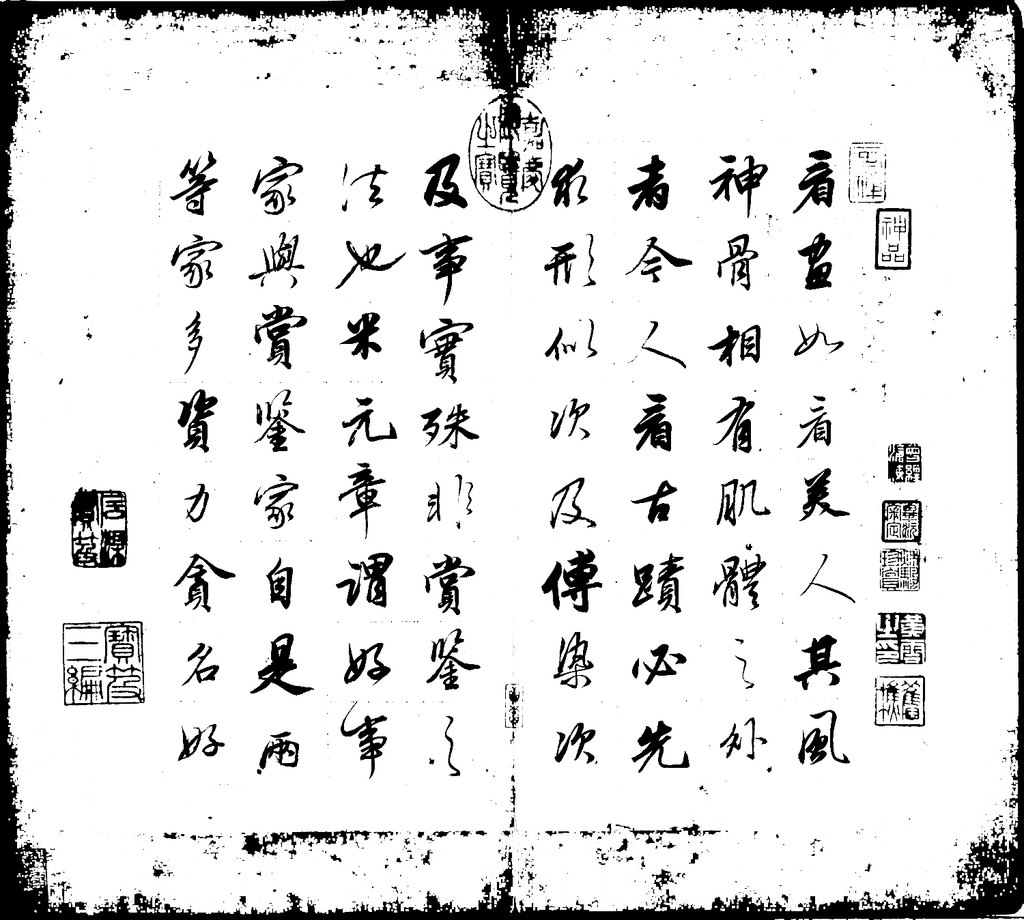 看畫如看美人其風
神骨相有肌體之外
者今人看古蹟必先
求形似次及傅染次
及事實殊非賞鑒之
法也米元章謂好事
家與賞鑒家自是兩
等家多資力貪名好
神品
嘉慶御覽之寶
寶笈三編